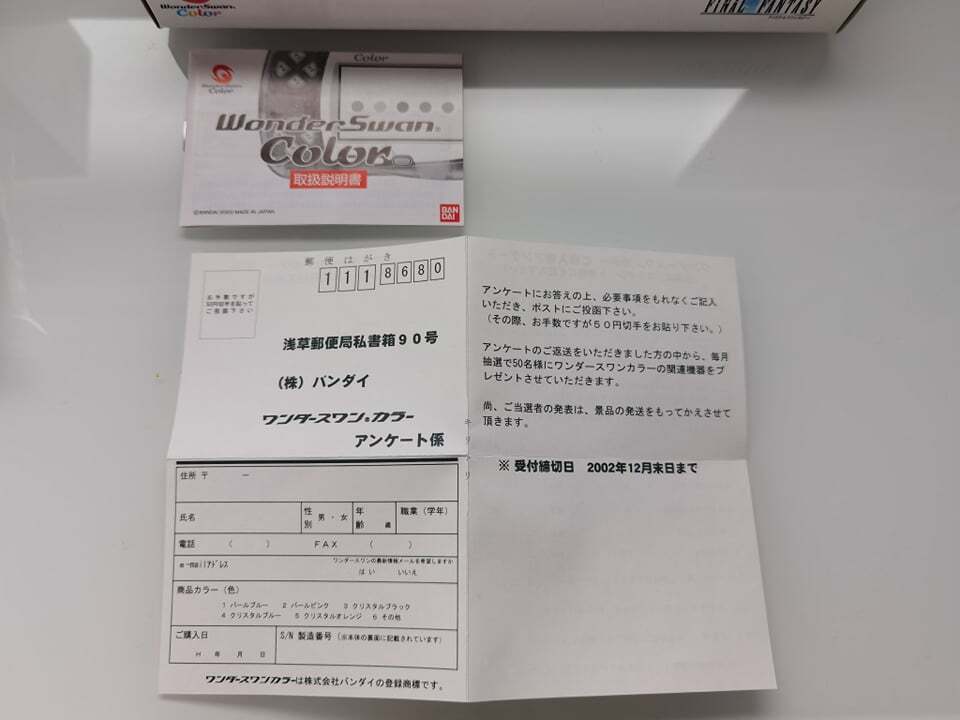 WonderSwan
Color
FINAL FANTASY
Color
Color
WonderSwan
Color
取扱説明書
©BANDAI 2000 MADE IN JAPAN
BAN
DAI
郵便はがき
1118680
お手数ですが
50円切手を貼って
ご投函下さい
浅草郵便局私書箱90号
（株）バンダイ
ワンダースワンカラー
アンケート係
アンケートにお答えの上、必要事項をもれなくご記入
いただき、ポストにご投函下さい。
（その際、お手数ですが５０円切手をお貼り下さい。）
アンケートのご返送をいただきました方の中から、毎月
抽選で50名様にワンダースワンカラーの関連機器をプ
レゼントさせていただきます。
尚、ご当選者の発表は、景品の発送をもってかえさせて
頂きます。
※ 受付締切日　2002年12月末日まで
キリトリ
住所 〒　－
氏名
性別 男・女
年齢 歳
職業（学年）
電話　（　　）　ＦＡＸ　（　　）
e-mailアドレス
ワンダースワンの最新情報メールを希望しますか
はい　いいえ
商品カラー（色）
1 パールブルー　2 パールピンク　3 クリスタルブラック
4 クリスタルブルー　5 クリスタルオレンジ　6 その他
ご購入日
H　年　月　日
S/N 製造番号（※本体の裏面に記載されています）
ワンダースワンカラーは株式会社バンダイの登録商標です。